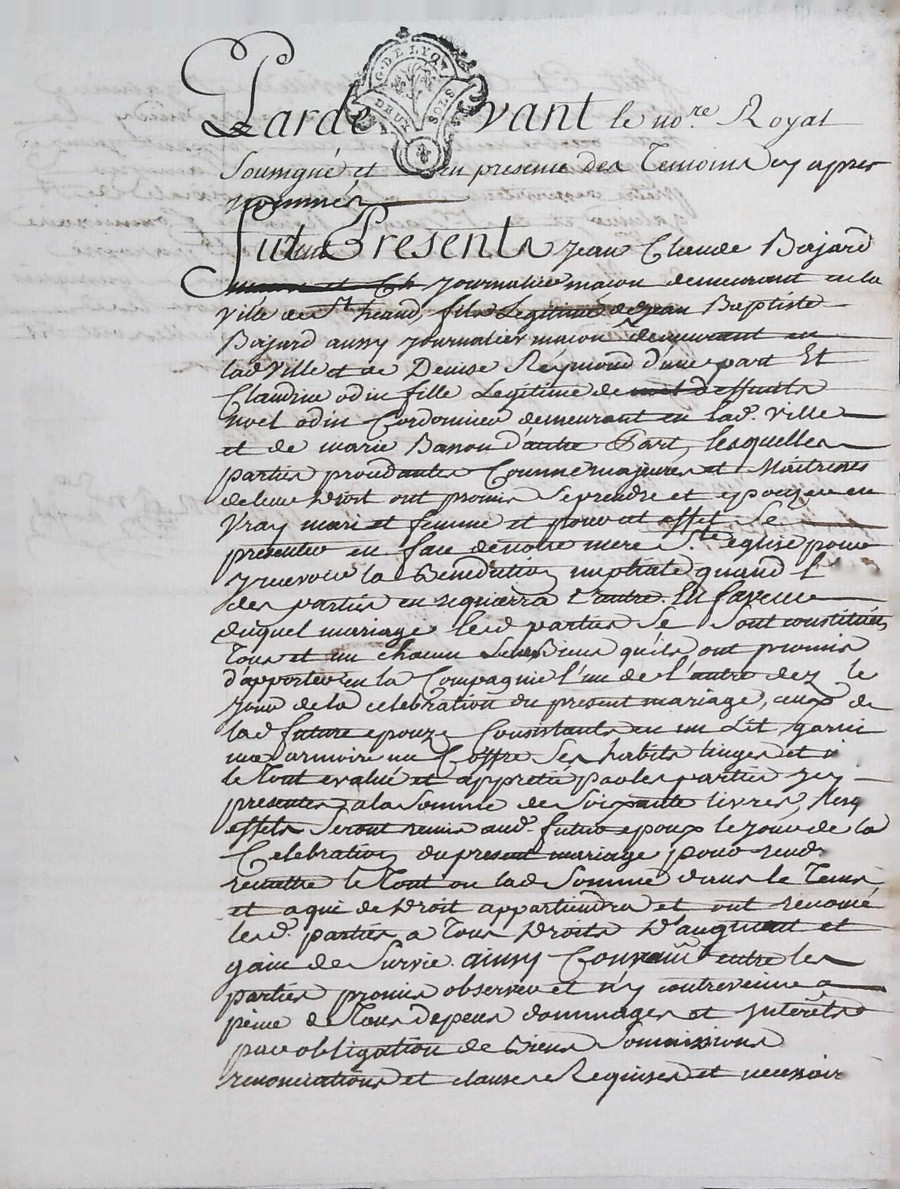 G. DE LYON
DEUX SOLS
Pardevant le no.re Royal
Soussigné et en presence des Temoins cy apres
nommés
fut Presents Jean Claude Bajard
journalier macon demeurant en la
Ville de St heand, fils Legitime de jean Baptiste
Bajard aussy journalier macon demeurant en
lad Ville et de Denise Reymond d'une part Et
Claudine odin fille Legitime de noel deffunts
noel odin Cordonnier demeurant en lad. Ville
et de marie Banou d'autre Part, lesquelles
parties procedantes Comme majeures et Maitresses
de leur Droit ont promis se prendre et epouzer en
Vray mari et femme et pour cet effet Se
presenter en face de notre mere Ste eglise pour
y recevoir la Benediction nuptiale quand l'
des parties en requerra L'autre. En faveur
duquel mariage lesd parties se Sont constitués
Tous et un chacun Leurs Biens qu'ils ont promis
d'apporter en la Compagnie l'un de l'autre dez le
jour de la celebration du present mariage, ceux de
lad future epouze Consistants en un Lit garni
une armoire un Coffre Ses habits linges et
le Tout evalué et appretié par les parties
presentes a la Somme de Soixante livres, lesq
effets Seront remis aud. futur epoux le jour de la
Celebration du present mariage pour rend
remettre le Tout ou lad Somme dans le Tems
et a qui de Droit appartiendra et ont renoncé
lesd. parties a Tous Droits D'augment et
gain de Survie. ainsy Convenu entre les
parties promis observer et n'y contrevenir a
peine de Tous depens dommages et interêts
par obligation de Biens Soumissions
renonciations et clauses Requises et necessair